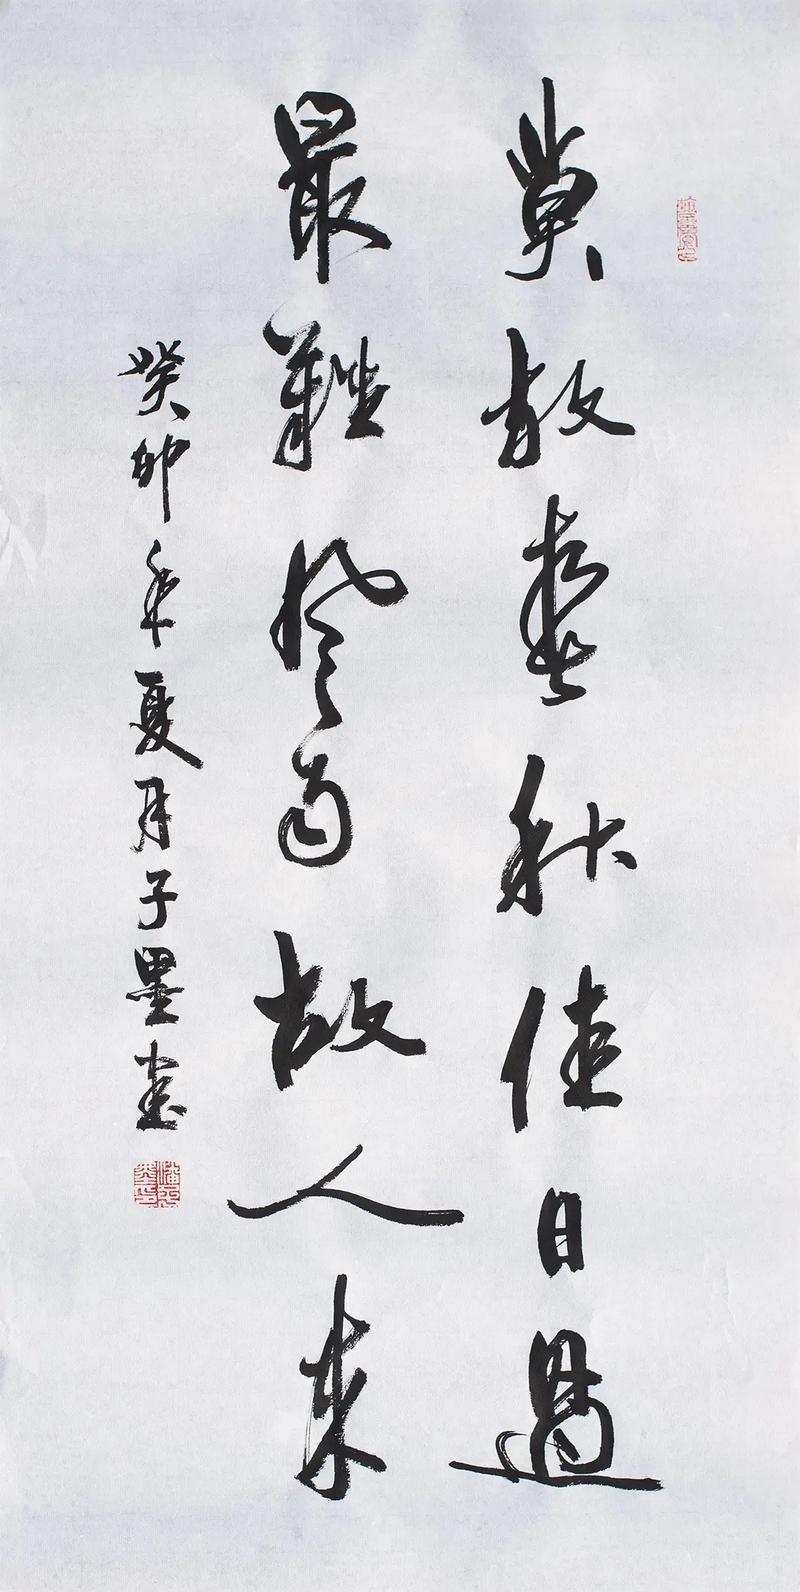 莫放春秋佳日過
最難風雨故人來
癸卯年夏月子墨書